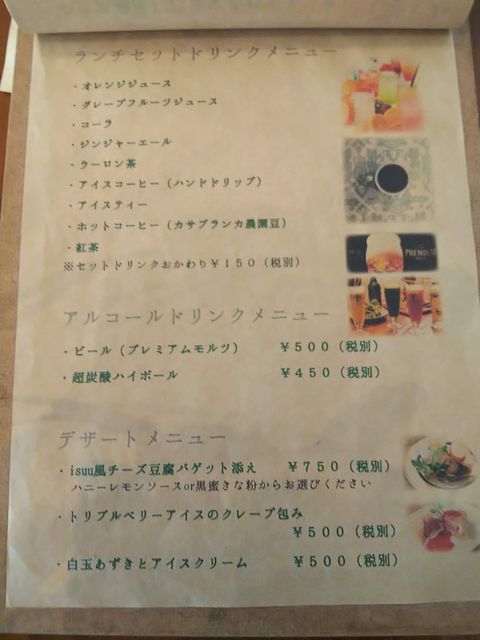 ランチセットドリンクメニュー
・オレンジジュース
・グレープフルーツジュース
・コーラ
・ジンジャーエール
・ウーロン茶
・アイスコーヒー（ハンドドリップ）
・アイスティー
・ホットコーヒー（カサブランカ農園豆）
・紅茶
※セットドリンクおかわり￥１５０（税別）
PREMIUM
アルコールドリンクメニュー
・ビール（プレミアムモルツ）　￥５００（税別）
・超炭酸ハイボール　￥４５０（税別）
デザートメニュー
・isuu風チーズ豆腐バゲット添え　￥７５０（税別）
ハニーレモンソースor黒蜜きな粉からお選びください
・トリプルベリーアイスのクレープ包み
￥５００（税別）
・白玉あずきとアイスクリーム　￥５００（税別）